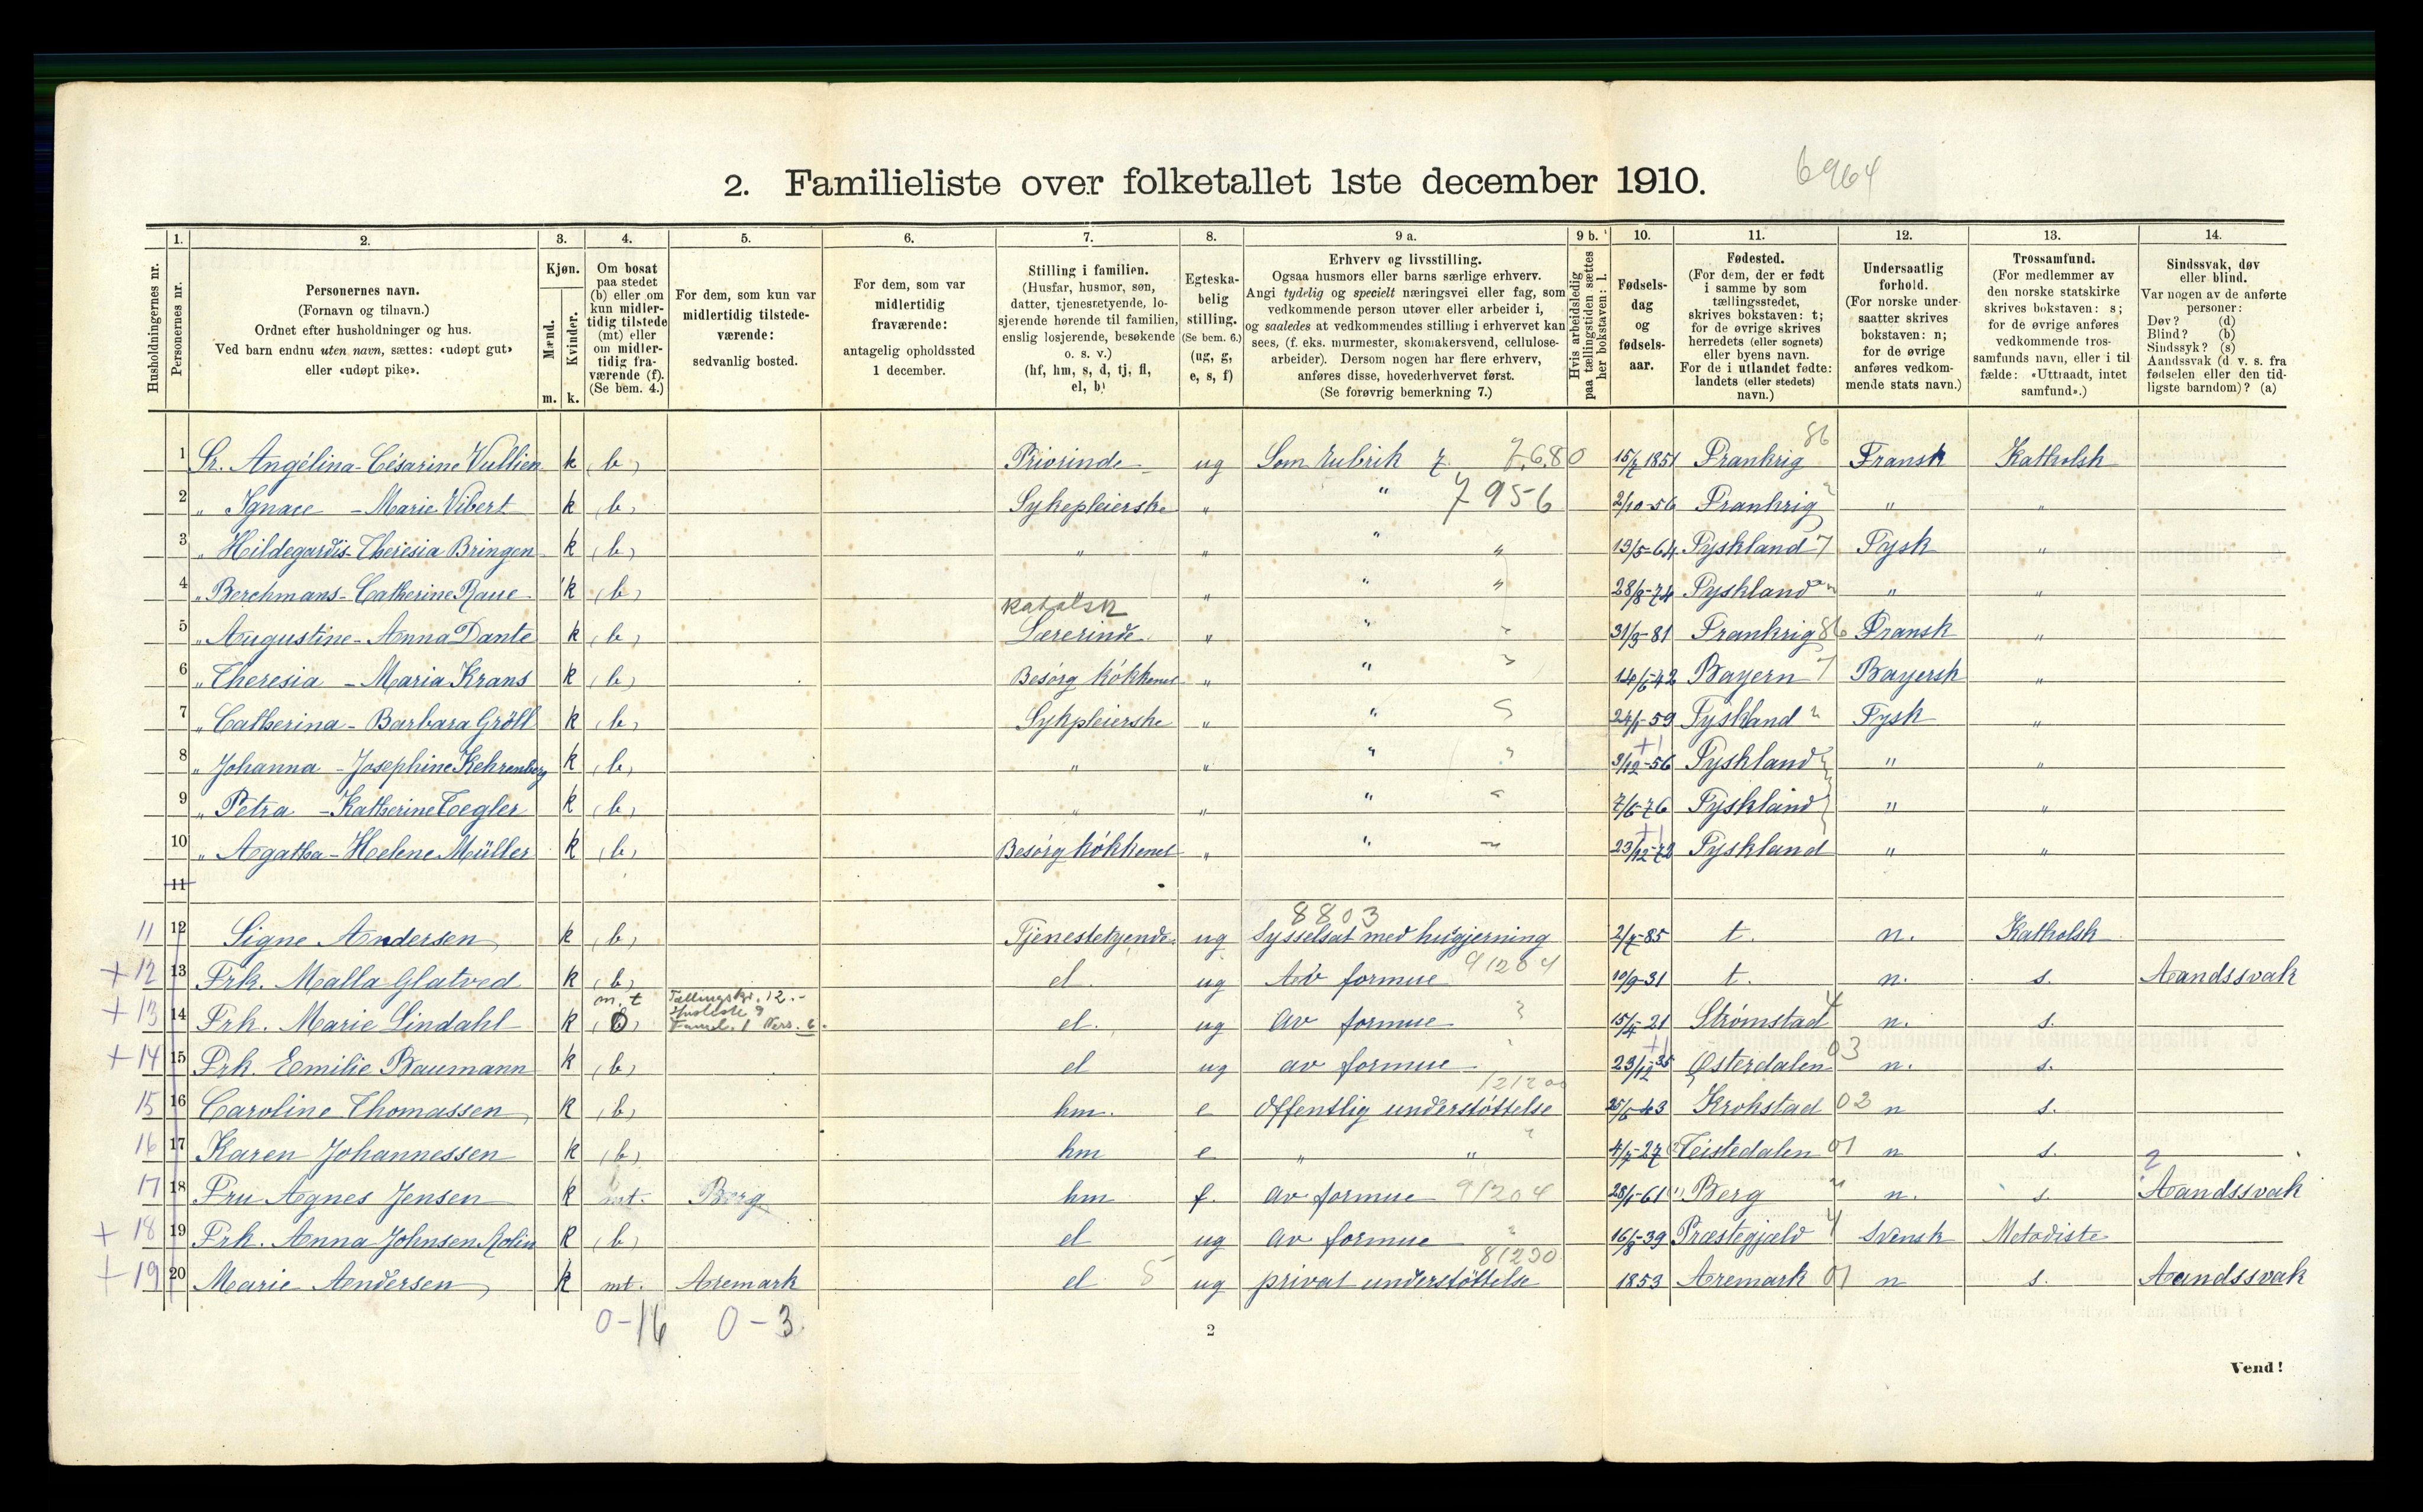 2. Familieliste over folketallet 1ste december 1910. 6964
1. 2. 3. 4. 5. 6. 7. 8. 9 a. 9 b. 10. 11. 12. 13. 14.
Husholdningernes nr.
Personernes nr.
Personernes navn.
(Fornavn og tilnavn.)
Ordnet efter husholdninger og hus.
Ved barn endnu uten navn, sættes: «udøpt gut»
eller «udøpt pike».
Kjøn.
Mænd.
Kvinder.
m. k.
Om bosat
paa stedet
(b) eller om
kun midler-
tidig tilstede
(mt) eller
om midler-
tidig fra-
værende (f).
(Se bem. 4.)
For dem, som kun var
midlertidig tilstede-
værende:
sedvanlig bosted.
For dem, som var
midlertidig
fraværende:
antagelig opholdssted
1 december.
Stilling i familien.
(Husfar, husmor, søn,
datter, tjenestetyende, lo-
sjerende hørende til familien,
enslig losjerende, besøkende
o. s. v.)
(hf, hm, s, d, tj, fl,
el, b)
Egteska-
belig
stilling.
(Se bem. 6.)
(ug, g,
e, s, f)
Erhverv og livsstilling.
Ogsaa husmors eller barns særlige erhverv.
Angi tydelig og specielt næringsvei eller fag, som
vedkommende person utøver eller arbeider i,
og saaledes at vedkommendes stilling i erhvervet kan
sees, (f. eks. murmester, skomakersvend, cellulose-
arbeider). Dersom nogen har flere erhverv,
anføres disse, hovederhvervet først.
(Se forøvrig bemerkning 7.)
Hvis arbeidsledig
paa tællingstiden sættes
her bokstaven: l.
Fødsels-
dag
og
fødsels-
aar.
Fødested.
(For dem, der er født
i samme by som
tællingsstedet,
skrives bokstaven: t;
for de øvrige skrives
herredets (eller sognets)
eller byens navn.
For de i utlandet fødte:
landets (eller stedets)
navn.)
Undersaatlig
forhold.
(For norske under-
saatter skrives
bokstaven: n;
for de øvrige
anføres vedkom-
mende stats navn.)
Trossamfund.
(For medlemmer av
den norske statskirke
skrives bokstaven: s;
for de øvrige anføres
vedkommende tros-
samfunds navn, eller i til-
fælde: «Uttraadt, intet
samfund».)
Sindssvak, døv
eller blind.
Var nogen av de anførte
personer:
Døv? (d)
Blind? (b)
Sindssyk? (s)
Aandssvak (d. v. s. fra
fødselen eller den tid-
ligste barndom)? (a)
86
1 Sr. Angélina-Césarine Vullien k (b) Priorinde ug Som rubrik 7. 7.6.80 15/7 1851 Frankrig Fransk Katholsk
2 " Ignace - Marie Vibert k (b) Sykepleierske " " 7956 2/10-56 Frankrig " "
3 " Hildegardis-Theresia Bringen k (b) " " " " 13/5-64 Tyskland 7 Tysk "
4 " Berchmans-Catherine Raue k (b) " " " 28/8-74 Tyskland " "
katolsk
5 " Augustine-Anna Dante k (b) Lærerinde " " 31/3-81 Frankrig 86 Fransk "
6 " Theresia - Maria Krans k (b) Besørg kökkenet " " 14/5-42 Bayern 7 Bayersk "
7 " Catherina - Barbara Gröll k (b) Sykpleierske " " 24/1-59 Tyskland Tysk "
8 " Johanna - Josephine Kehrenberg k (b) " " " 3/12-56 Tyskland " "
9 " Petra - Katherine Toegler k (b) " " " 7/5-76 Tyskland " "
10 " Agatha-Helene Müller k (b) Besørg kökkenet " " 23/12-72 Tyskland " "
11
8803
11 12 Signe Andersen k (b) Tjenestetyende ug Sysselsat med husgjerning 2/7-85 t. n. Katholsk
+ 12 13 Frk. Malla Glatved k (b) el ug Av formue 91204 10/9-31 t. n. s. Aandssvak
m.t Tællingskr. 12.-
Husliste 9
+ 13 14 Frk. Marie Lindahl k (b) Famil. 1 Pers. 6. el. ug av formue 15/4-21 Strømstad 4 n. s.
+ 14 15 Frk. Emilie Baumann k (b) el ug av formue 23/12-35 Østerdalen 03 n. s.
15 16 Caroline Thomassen k (b) hm. e Offentlig understøttelse 121200 25/5-43 Krokstad 02 n s.
16 17 Karen Johannessen k (b) hm e " " 4/7-27 Teistedalen 01 n s.
17 18 Fru Agnes Jensen k mt. Berg hm f. av formue 91204 28/1-61 Berg n. s. Aandssvak
+ 18 19 Frk. Anna Johnsen Rolin k (b) el ug av formue 16/8-39 Præstegjæld 4 Svensk Metodiste
+ 19 20 Marie Andersen k mt. Aremark el 5 ug privat understøttelse 81290 1853 Aremark 01 n s. Aandssvak
0-16 0-3
2
Vend!